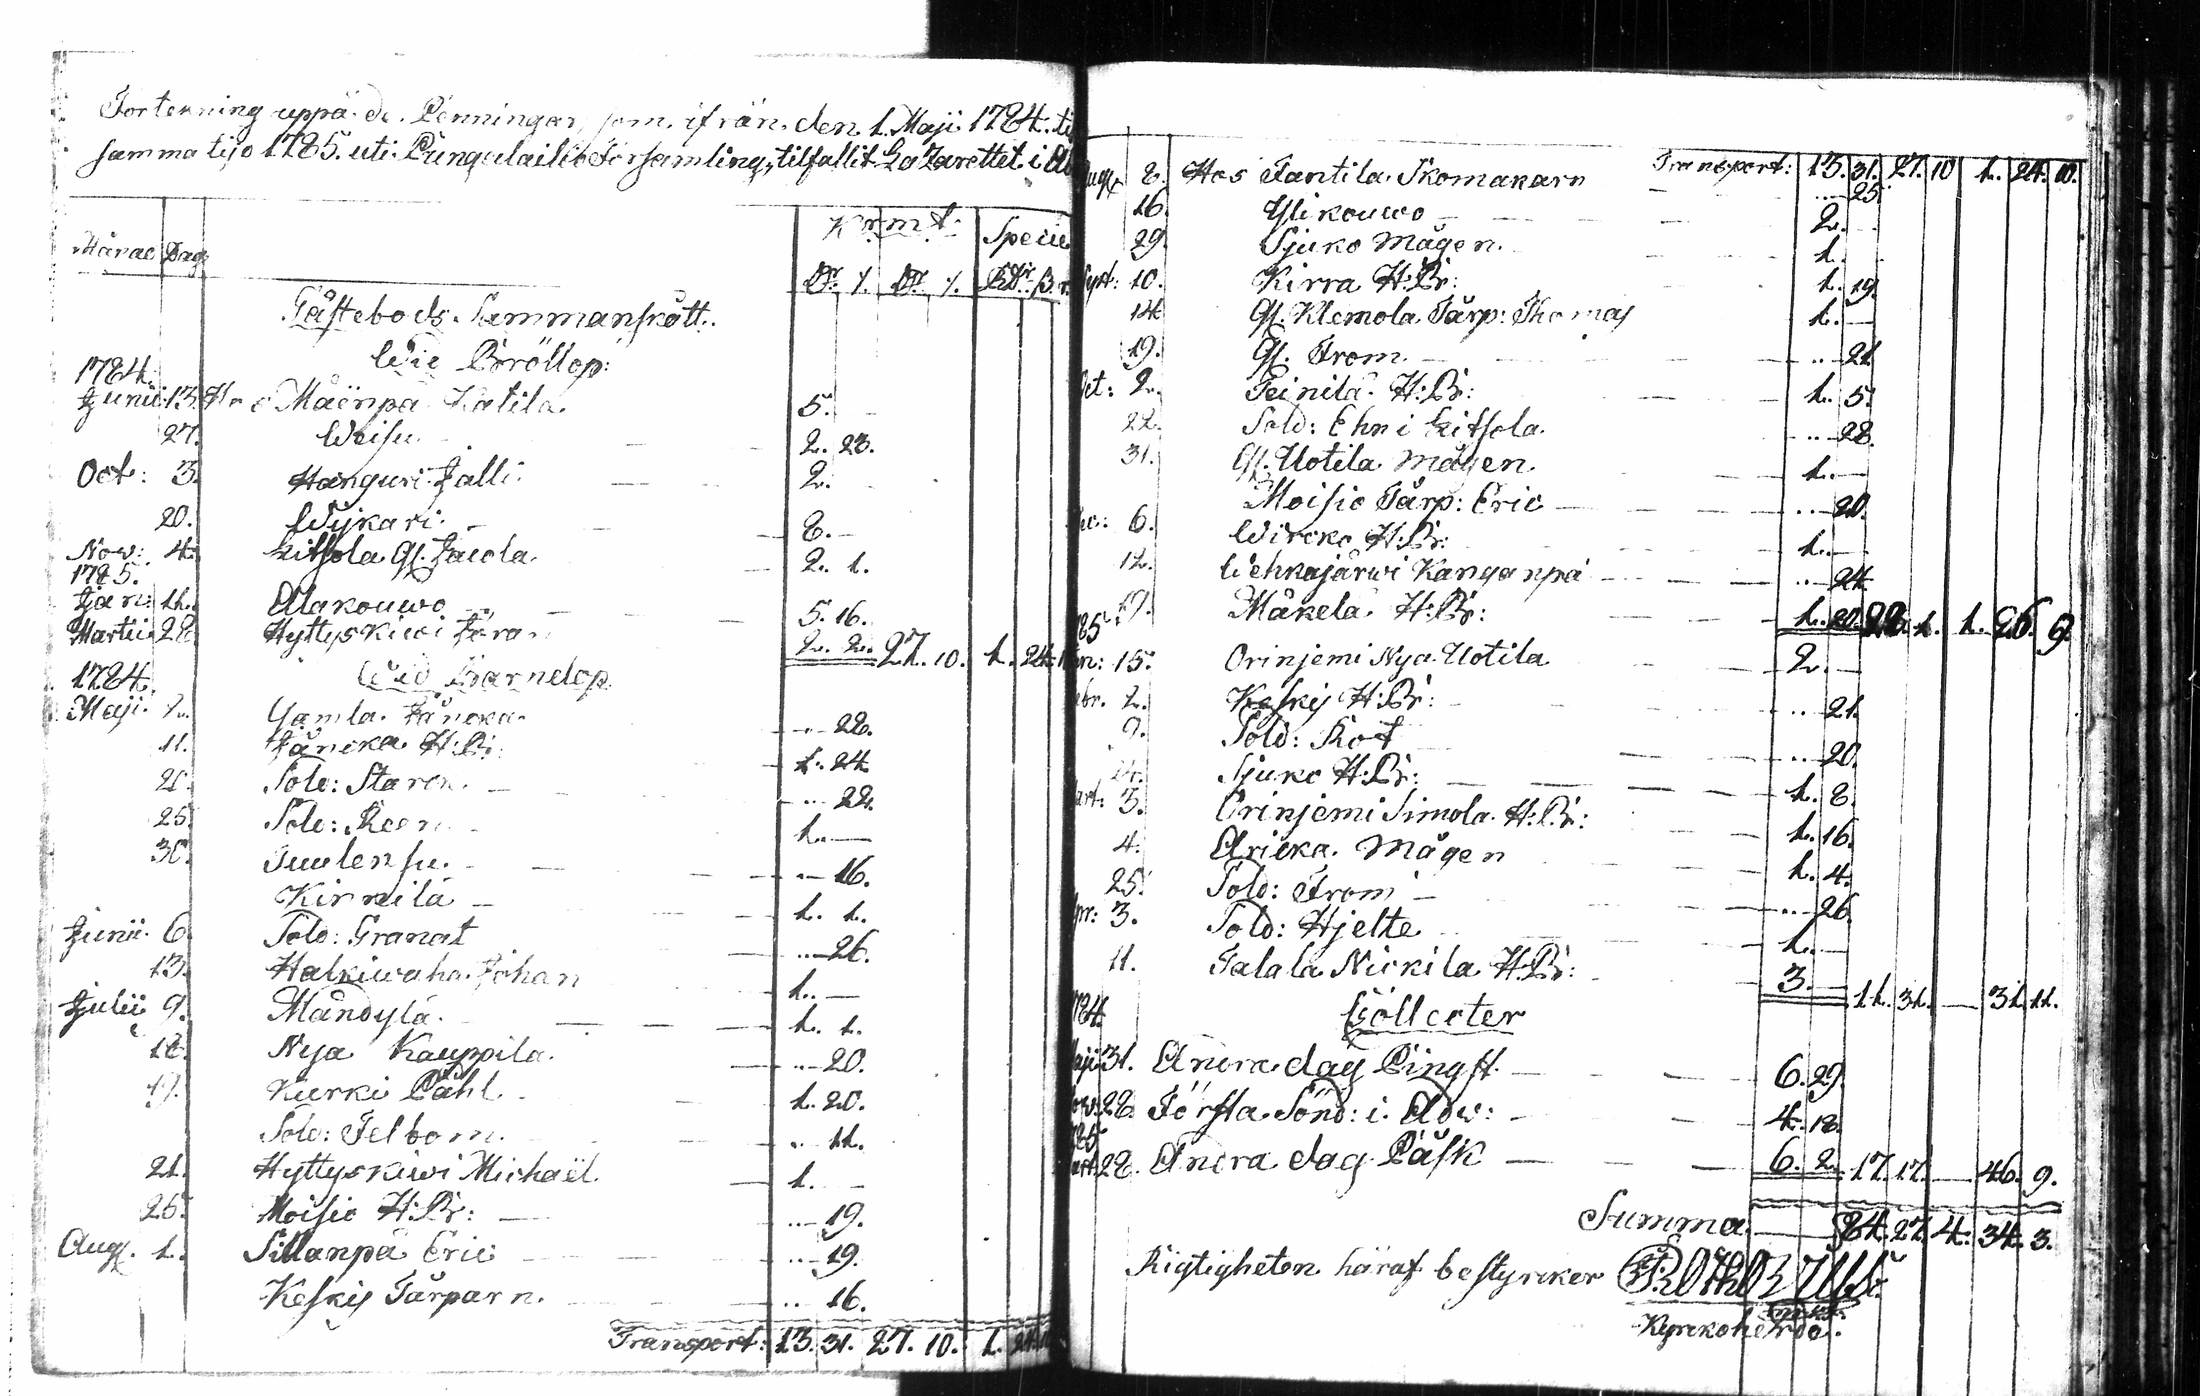 Fortekning uppå de Penningar, som ifrån den 1. Maji 1784. til
samma tijd 1785. uti Pungalaitio Församling, tilfallit Lazarettet i
Månad Dag Krmt. Specie
Dr. /. Dr. /. RDr. ß. r.
Gästebods Sammanskått.
Wid Bröllop:
1784.
Junii 13. Hos Mäenpä Katila. 5.
27. Weisu 2. 23.
Oct: 3. Hanguri Jalli 2.
20. Wijkari 8.
Nov: 4. Littsola Gl. Jacola 2. 1.
1785.
Jan: 11. Alakouwo 5. 16.
Martii 28 Hyttyskiwi Jöran 2. 2. 27. 10. 1. 24.
1784. Wid Barnelop
Maji. Gamla Jäncka. .. 22.
11. Jäncka H:Br: 1. 24.
20. Sold: Starck .. 22.
25. Sold: Reen 1. —
30. Tuulensu. .. 16.
Kirmilä 1. 1.
Junii 6. Sold: Granat .. 26.
13. Halkiwaha Johan 1. —
Julii 9. Mändylä. 1. 1.
18. Nya Kauppila. .. 20.
19. Kurki Påhl 1. 20.
Sold: Felbom. .. 11.
21. Hyttyskiwi Michaël. 1. —
25. Moisio H:Br: .. 19.
Aug. 1. Sillanpä Eric .. 19.
Keskis Tårparn. .. 16.
Transport: 13. 31. 27. 10. 1.
Transport: 13. 31. 27. 10 1. 24. 10.
8. Hos Tantila Skomakarn .. 25.
16. Ylikouwo 2.
29. Sjuko Mågen. 1.
Sept: 10. Kirra H:Br: 1. 19.
14. Gl. Klemola Tårp: Thomas 1. —
19. Gl. From. .. 21.
Oct: 2. Teinilä H:Br: 1. 5.
22. Sold: Ehn i Littsola. .. 28.
31. Gl. Uotila Mågen. 1. —
Moisio Tårp: Eric .. 20.
6. Wircko H:Br: 1. —
12. Wehkajärwi Kanganpä .. 24.
19. Mäkelä H:Br: 1. 20. 28. 1. 1. 26. 9.
15. Orinjemi Nya Uotila 2. —
2. Keskis H:Br: .. 21.
9. Sold: Rot .. 20.
Sjuko H:Br: 1. 8.
3. Orinjemi Simola H:Br: 1. 16.
4. Aricka Mågen 1. 4.
25. Sold: From .. 26.
3. Sold: Hjelte 1. —
11. Talala Nickila H:Br: 3. — 11. 31. — 31. 11.
Collecter
31. Andra dag Pingst 6. 29.
28. Första Sönd: i Adv: 4. 18.
28. Andra dag Påsk 6. 2. 17. 17. — 46. 9.
Summa 84. 27. 4. 34. 3.
Rigtigheten häraf bestyrcker
Kyrckoherde.